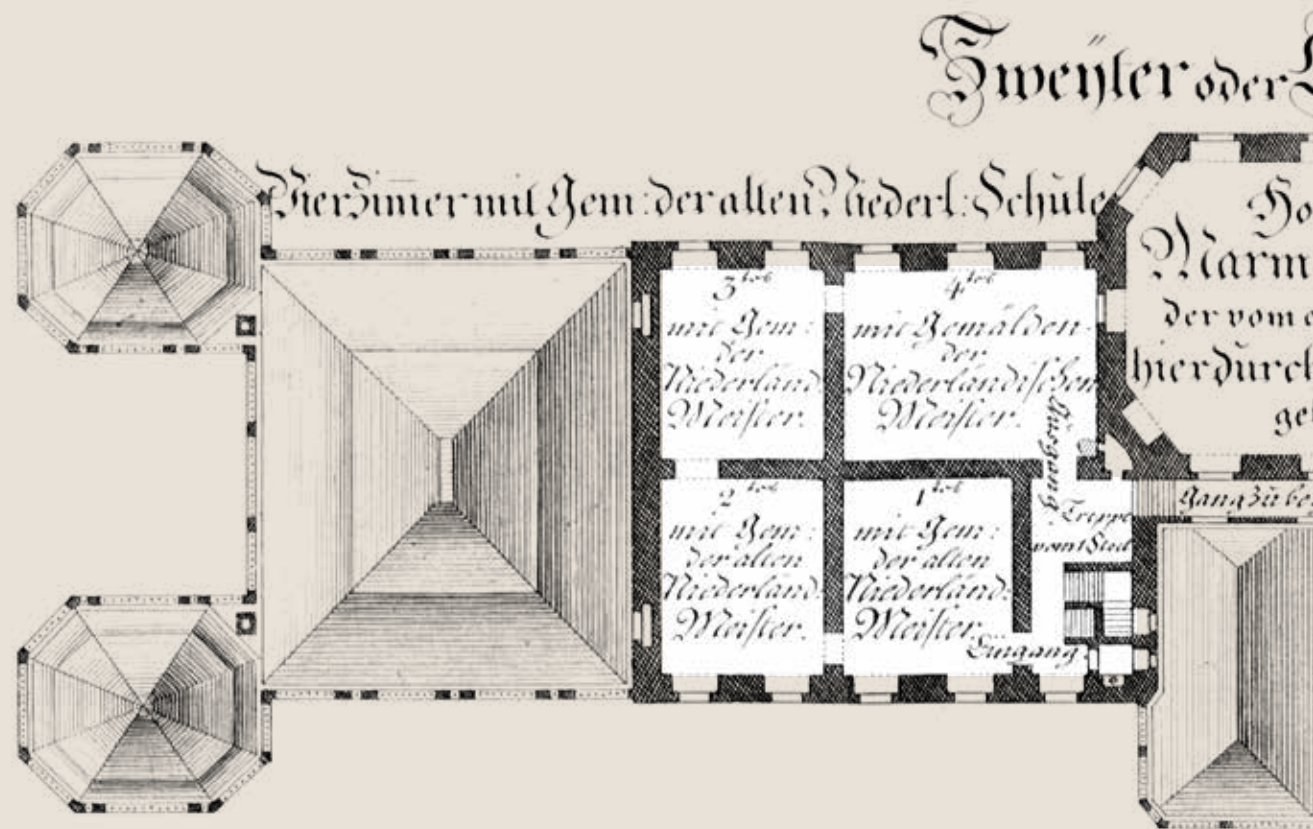 Zweÿter oder
Vier Zimer mit Gem: der alten Niederl: Schule
3tes
mit Gem:
der
Niederländ:
Meister.
4tes
mit Gemälden
der
Niederländischen
Meister.
Ausgang
2tes
mit Gem:
der alten
Niederländ:
Meister.
1tes
mit Gem:
der alten
Niederländ:
Meister.
Eingang.
Treppe
vom 1 Stock
Ho
Marm
der vom
hierdurch
ge
Gang zu be